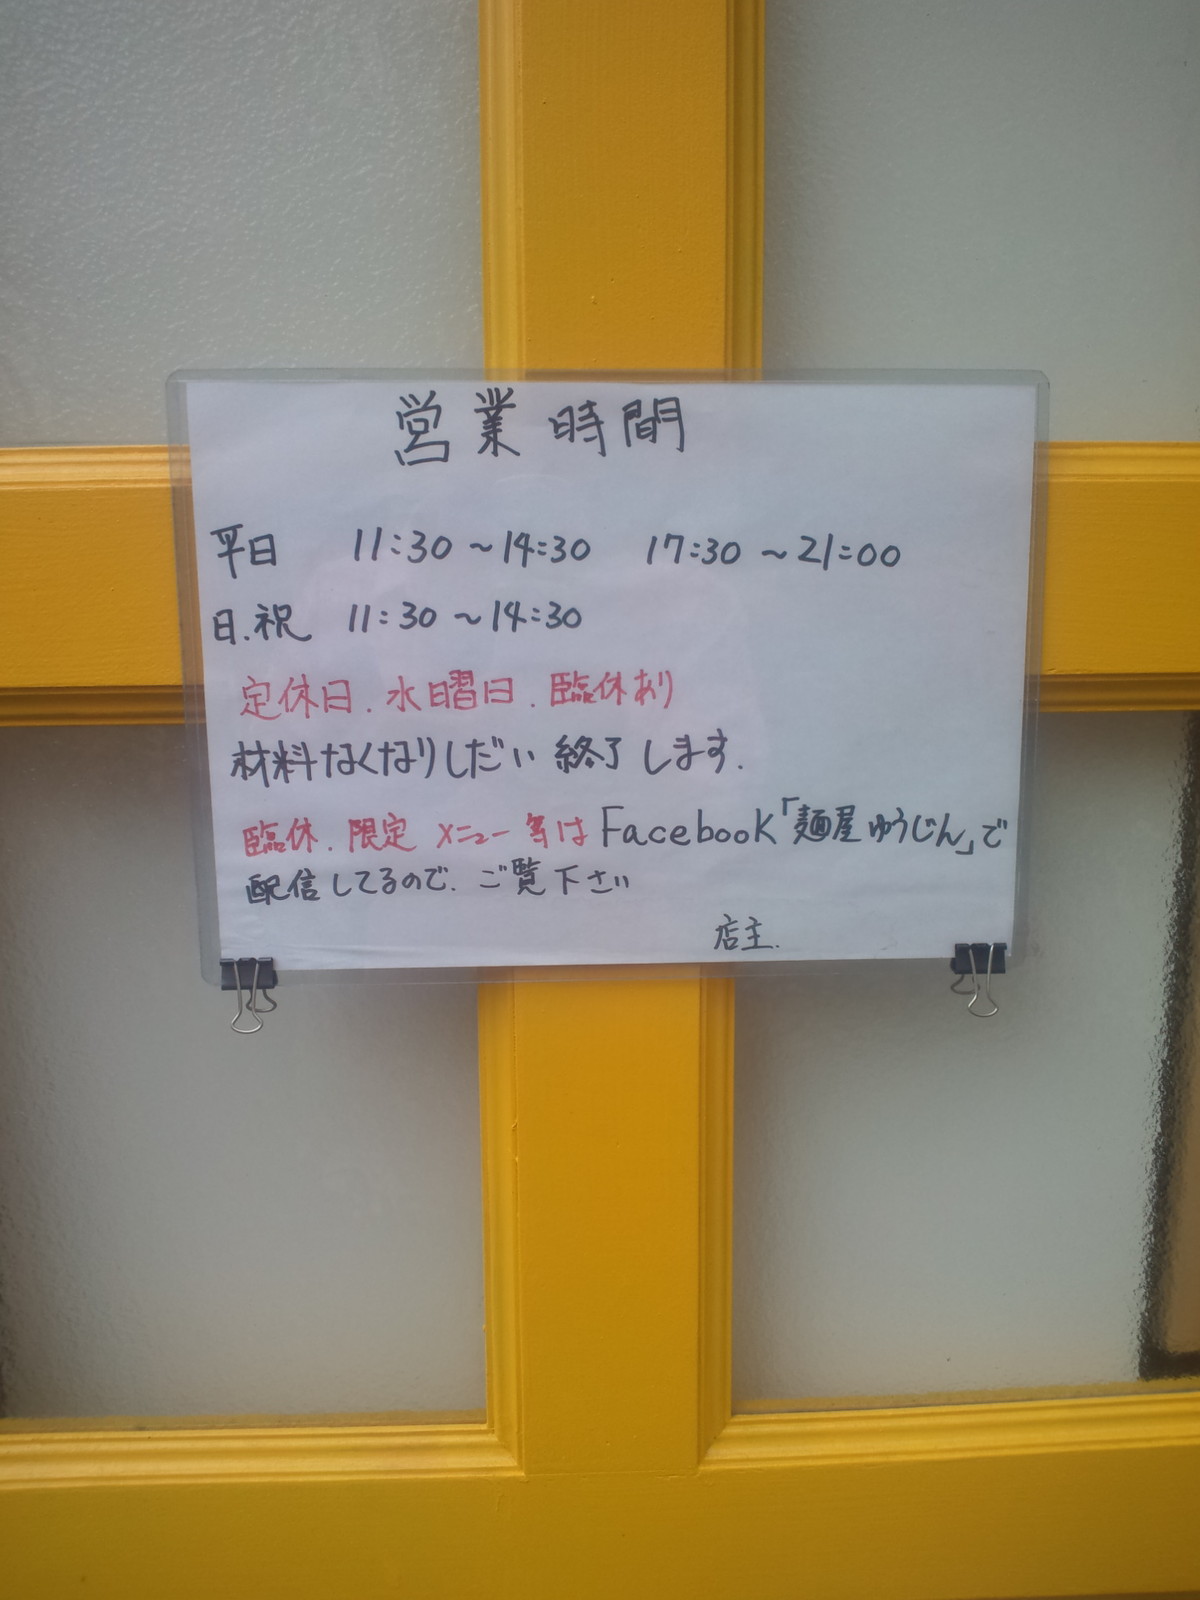 営業時間
平日 11:30～14:30 17:30～21:00
日.祝 11:30～14:30
定休日.水曜日.臨休あり
材料なくなりしだい終了します.
臨休.限定メニュー等はFacebook「麺屋ゆうじん」で
配信してるので.ご覧下さい
店主.